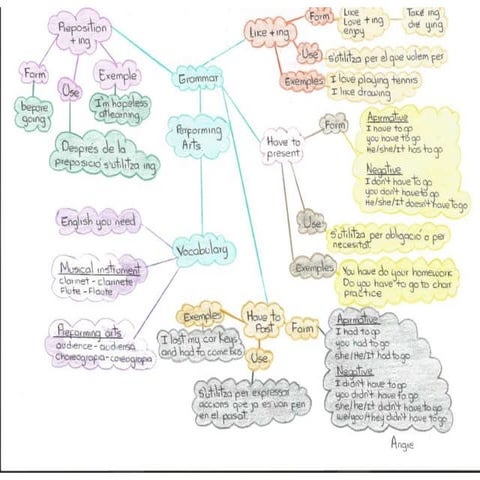 Preposition
+ ing
Form
before
going
Use
Després de la
preposició s'utilitza ing
Exemple
I'm hopeless
at learning
Grammar
Performing
Arts
Like + ing
Form
Like
Love + ing
enjoy
Take ing
die ying
Use
s'utilitza per el que volem fer
Exemples
I love playing tennis
I like drawing
Have to
present
Form
Afirmative
I have to go
you have to go
He/she/It has to go
Negative
I don't have to go
you don't have to go
He/she/It doesn't have to go
Use
S'utilitza per obligació o per
necesitat.
Exemples
You have do your homework
Do you have to go to choir
practice
Vocabulary
English you need
Musical instrument
clarinet - clarinete
Flute - Flaute
Performing arts
audience - audiensa
Choreographa - coreografa
Have to
Past
Exemples
I lost my car keys
and had to come
Use
S'utilitza per expressar
accions que ja es van fer
en el pasat.
Form
Afirmative
I had to go
you had to go
she/He/It had to go
Negative
I didn't have to go
you didn't have to go
she/he/It didn't have to go
we/you/they didn't have to go
Angie